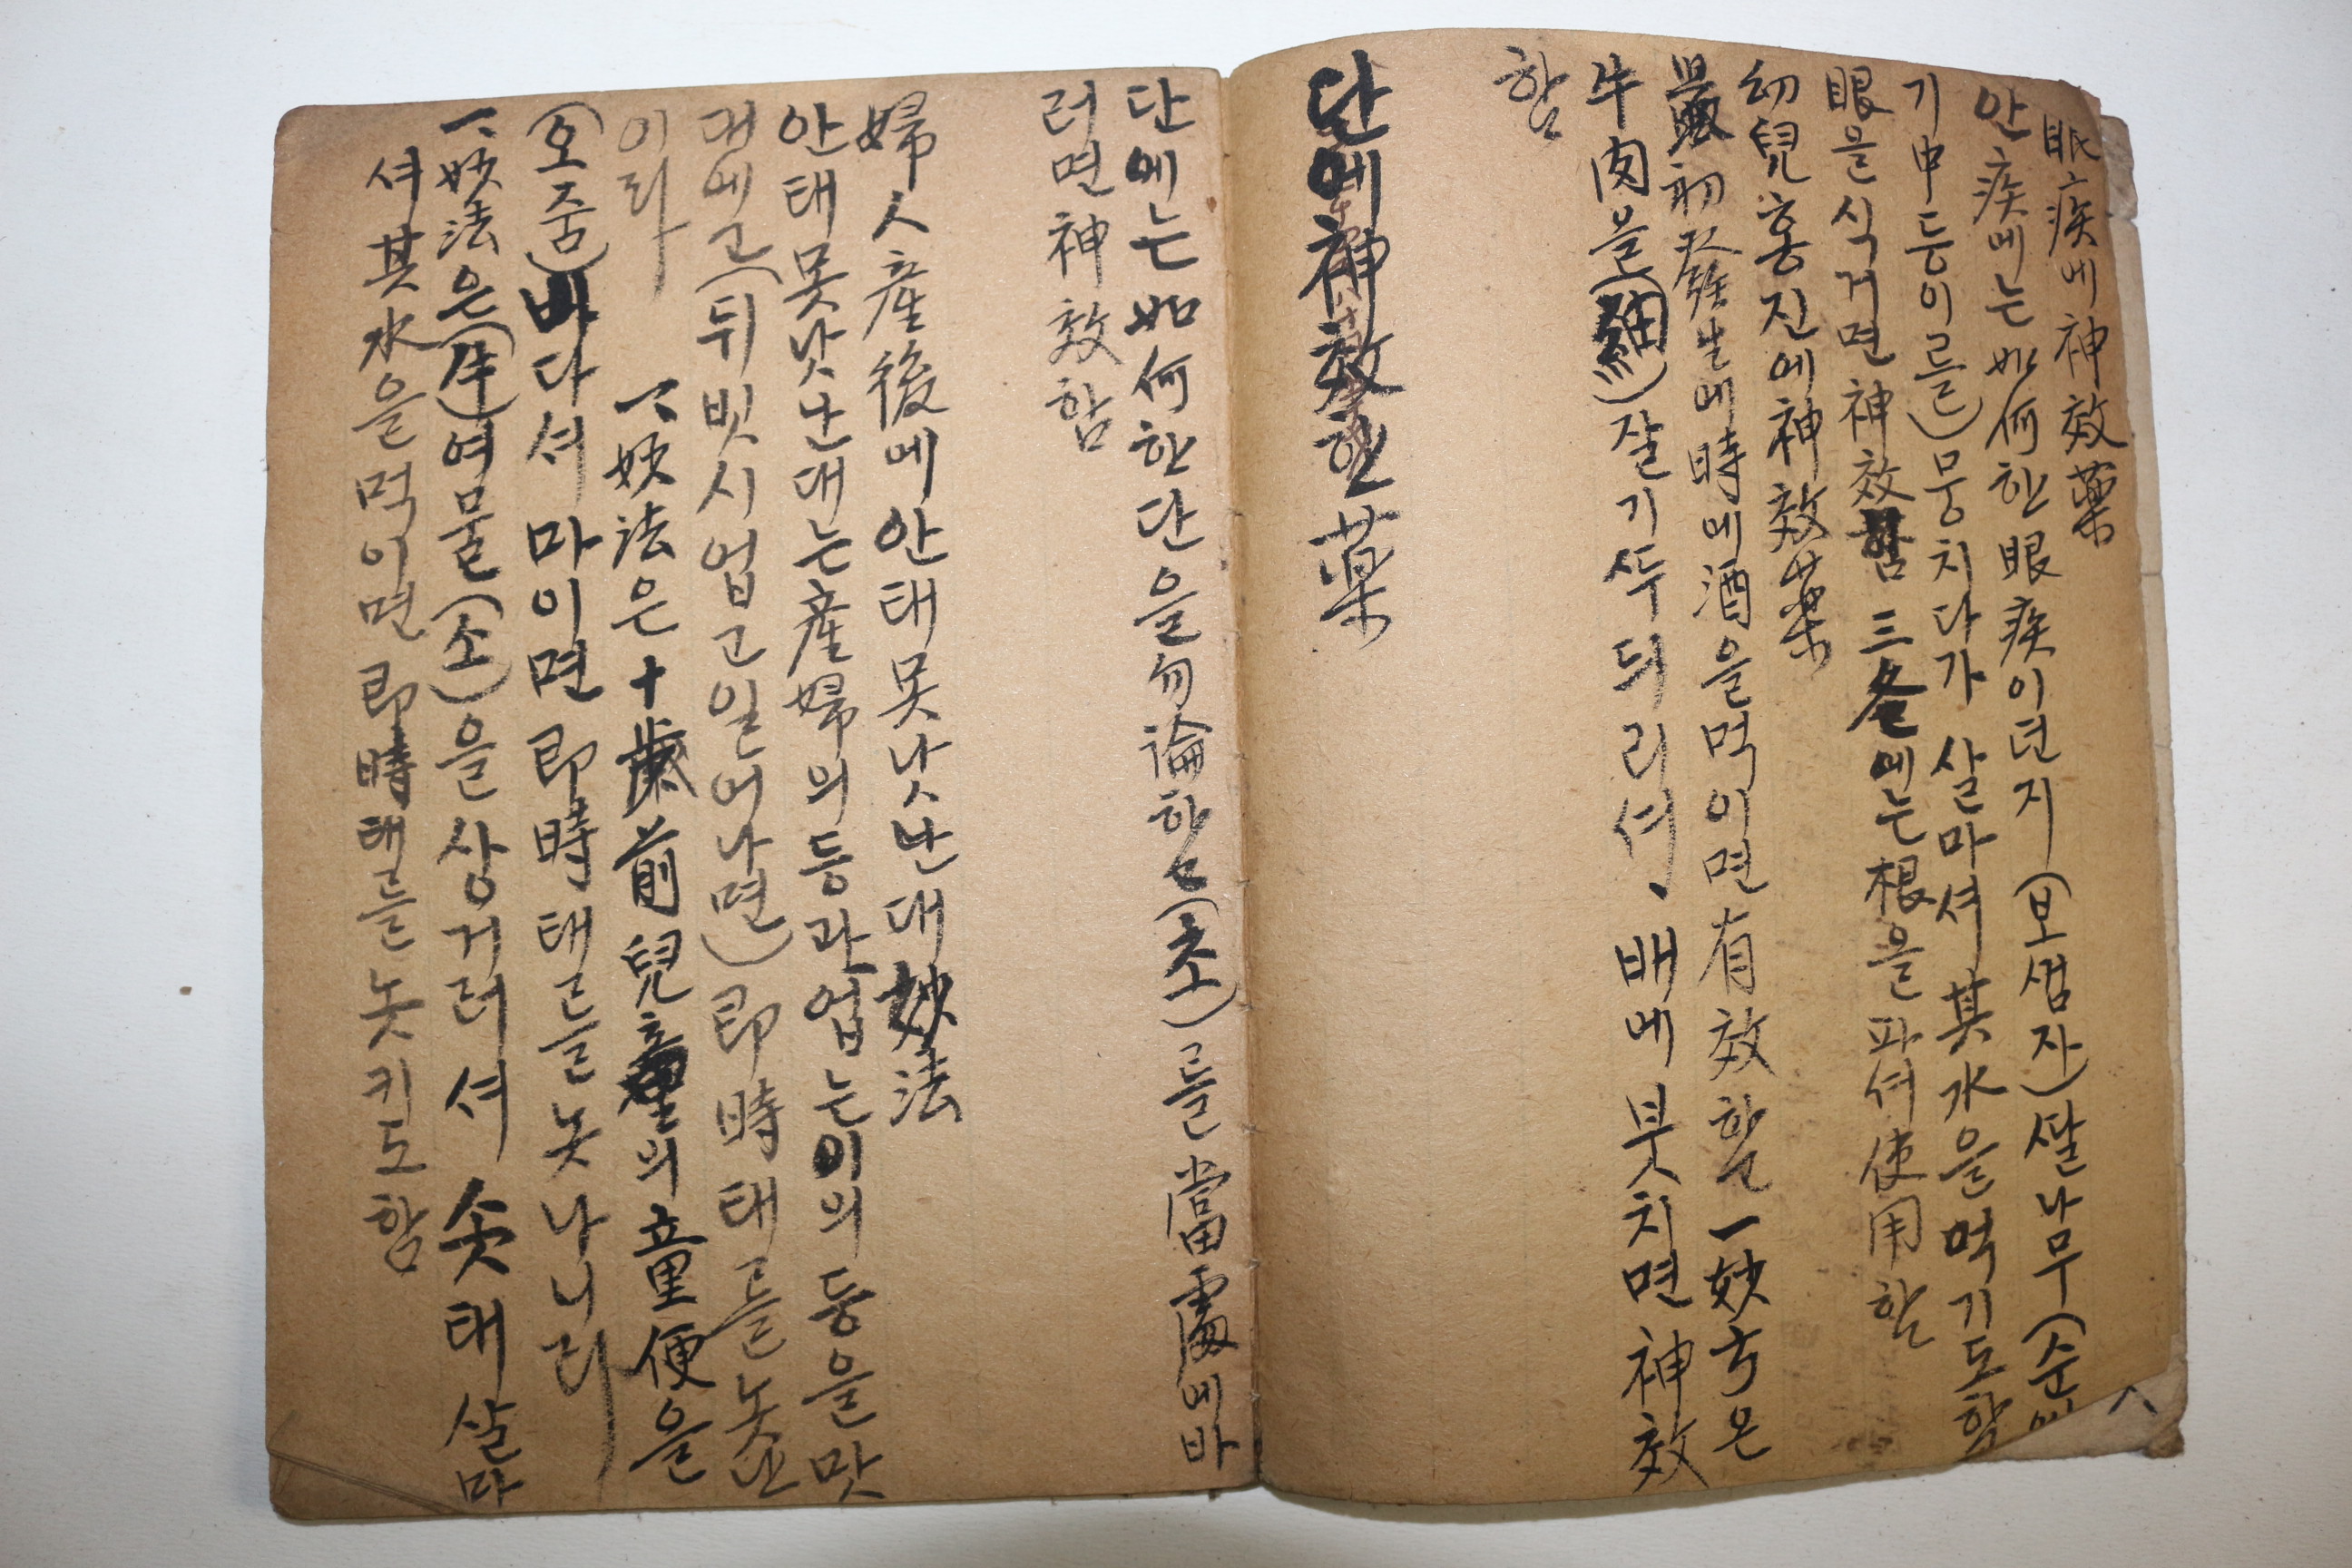 眼疾에神效藥
안疾에는如何한眼疾이던지(보샘자)ᄯᅡᆯ나무(순
기中등이를)뭉치다가살마셔其水을먹기도함
眼을식거면神效함三冬에는根을파셔使用할
幼兒홍진에神效藥
最初發生에時에酒을먹이면有效할一妙方은
牛肉을(細)잘기ᄯᅮ듸리셔、배에붓치면神效
함
단에神效한薬
단에는如何한단을勿論하고(초)를當處에바
러면神效함
婦人産後에안태못낫난대妙法
안태못낫난대는産婦의등과업는이의등을맛
대에고(뒤빗시업고일어나면)即時태를놋난
이라
一、妙法은十歲前兒童의童便을
(오줌)바다셔마이면即時태를놋나니라
一、妙法은(牛)여물(소)을상거려셔솟태살마
셔其水을먹이면即時태를놋키도함